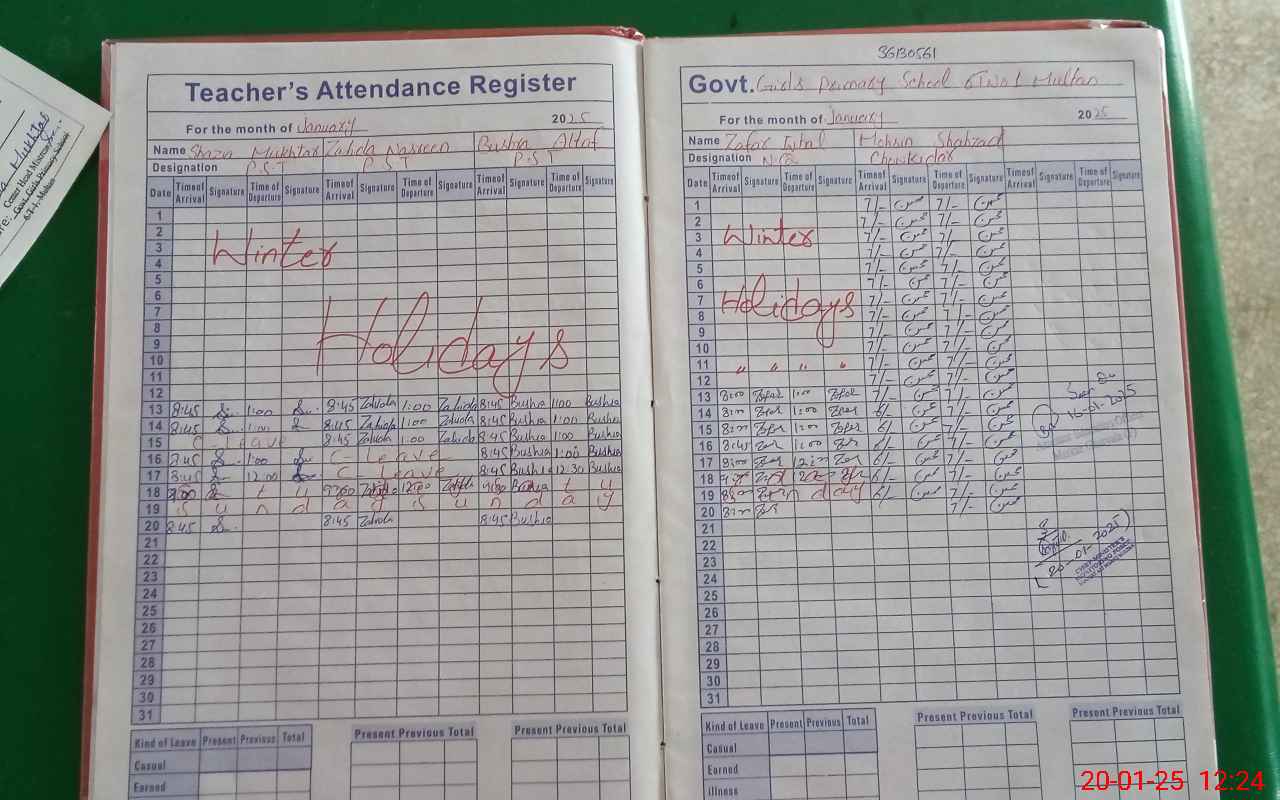 36130561
Teacher's Attendance Register
For the month of January 2025
Name Shazia Mukhtar Zahida Nasreen Bushra Altaf
Designation P.S.T P.S.T P.S.T
Date Time of Arrival Signature Time of Departure Signature Time of Arrival Signature Time of Departure Signature Time of Arrival Signature Time of Departure Signature
1
2
3 Winter
4
5
6
7
8
9 Holidays
10
11
12
13 8:45 1:00 8:45 Zahida 1:00 Zahida 8:45 Bushra 1:00 Bushra
14 8:45 1:00 8:45 Zahida 1:00 Zahida 8:45 Bushra 1:00 Bushra
15 C-Leave 8:45 Zahida 1:00 Zahida 8:45 Bushra 1:00 Bushra
16 8:45 1:00 C-Leave 8:45 Bushra 1:00 Bushra
17 8:45 12:00 C-Leave 8:45 Bushra 12:30 Bushra
18
19 S u n d a y S u n d a y
20 8:45 8:45 Zahida 8:45 Bushra
21
22
23
24
25
26
27
28
29
30
31
Kind of Leave Present Previous Total Present Previous Total Present Previous Total
Casual
Earned
Govt. Girls Primary School Multan
For the month of January 2025
Name Zafar Iqbal Mohsin Shahzad
Designation Chowkidar
Date Time of Arrival Signature Time of Departure Signature Time of Arrival Signature Time of Departure Signature Time of Arrival Signature Time of Departure Signature
1 7/- محسن 7/- محسن
2 7/- محسن 7/- محسن
3 Winter 7/- محسن 7/- محسن
4 7/- محسن 7/- محسن
5 7/- محسن 7/- محسن
6 7/- محسن 7/- محسن
7 Holidays 7/- محسن 7/- محسن
8 7/- محسن 7/- محسن
9 7/- محسن 7/- محسن
10 7/- محسن 7/- محسن
11 " " " " 7/- محسن 7/- محسن
12 7/- محسن 7/- محسن
13 8:00 Zafar 1:00 Zafar 7/- محسن 7/- محسن
14 8:00 Zafar 1:00 Zafar 6/- محسن 7/- محسن
15 8:00 Zafar 1:00 Zafar 6/- محسن 7/- محسن
16 8:45 1:00 6/- محسن 7/- محسن
17 8:00 6/- محسن 7/- محسن
18 6/- محسن 7/- محسن
19 day 6/- محسن 7/- محسن
20 8:00 7/- محسن
21
22
23
24
25
26
27
28
29
30
31
16-01-2025
20-01-2025
Kind of Leave Present Previous Total Present Previous Total Present Previous Total
Casual
Earned
illness
Mukhtar
20-01-25 12:24